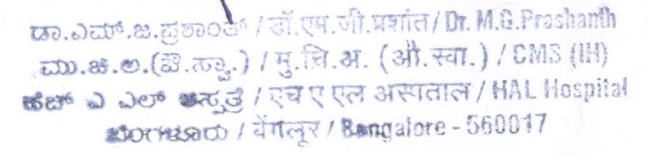 ಡಾ.ಎಮ್.ಜಿ.ಪ್ರಶಾಂತ್ / डॉ.एम.जी.प्रशांत / Dr. M.G.Prashanth
ಮು.ಚಿ.ಅ.(ಔ.ಸ್ವಾ.) / मु.चि.अ. (औ.स्वा.) / CMS (IH)
ಹೆಚ್ ಎ ಎಲ್ ಆಸ್ಪತ್ರೆ / एच ए एल अस्पताल / HAL Hospital
ಬೆಂಗಳೂರು / बेंगलूर / Bangalore - 560017